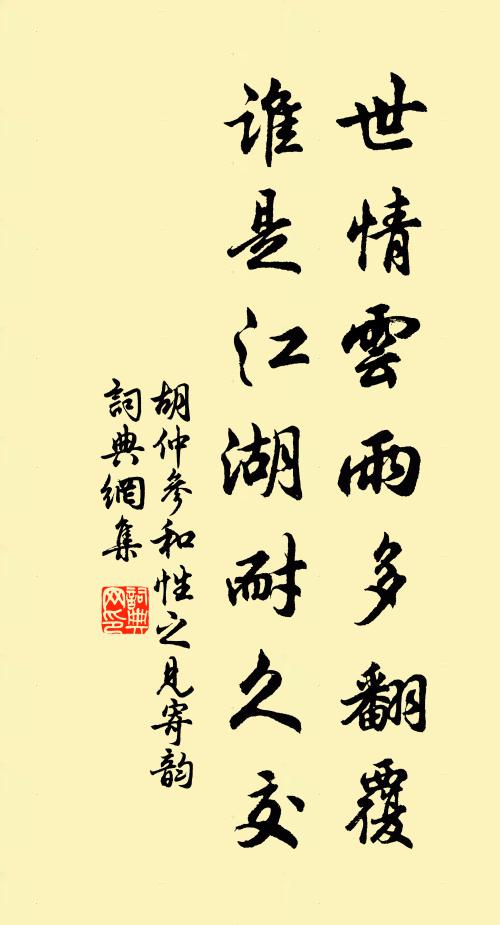 世情雲雨多翻覆
誰是江湖耐久交
胡仲參和性之見寄韵
詞典網集
詞典
网印